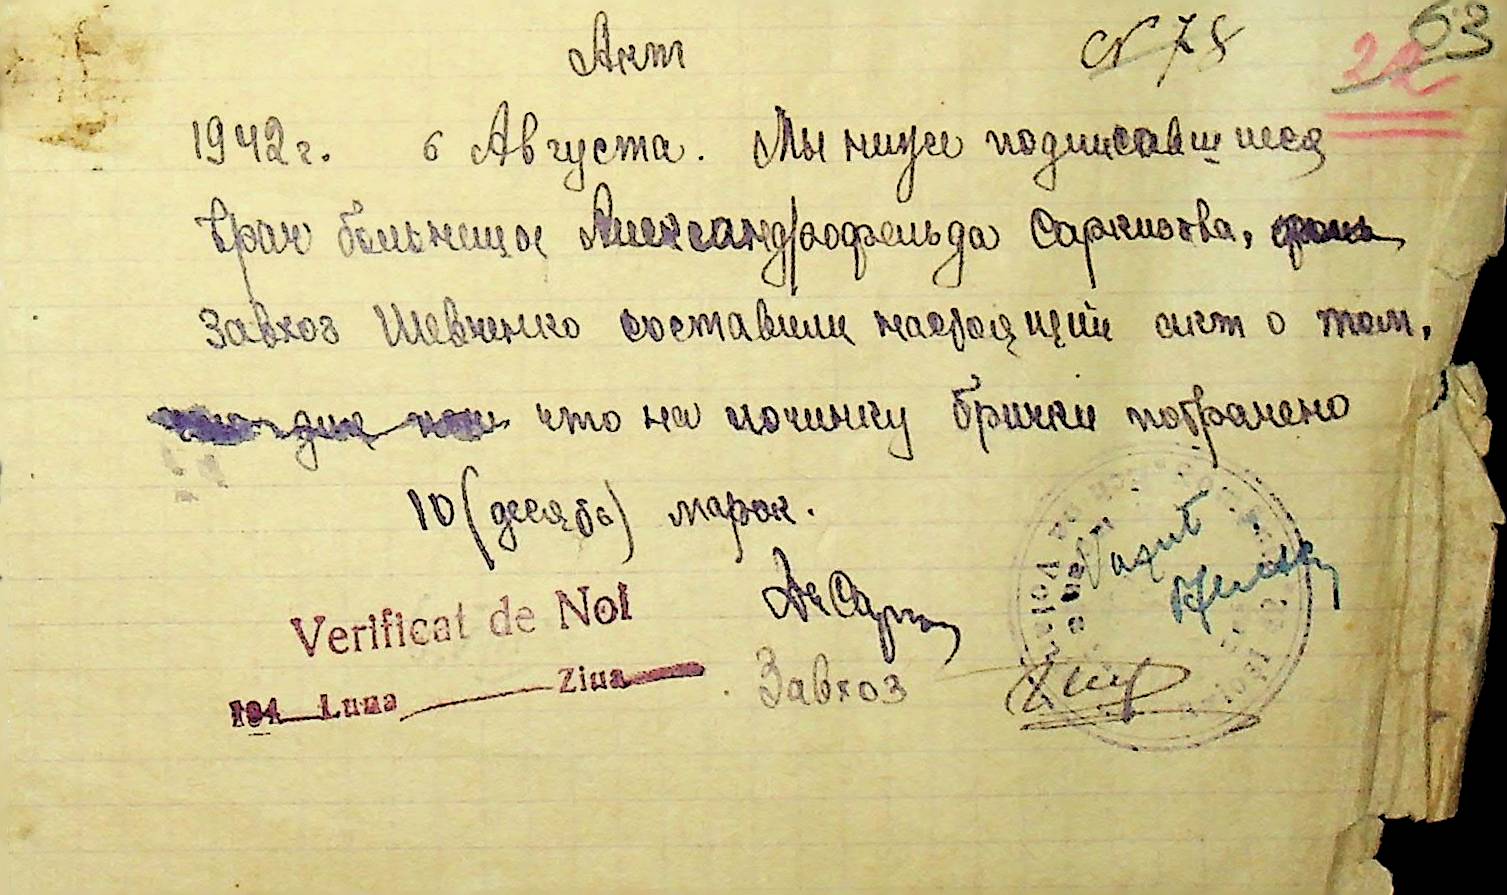 Акт
N 78
63
22
1942 г. 6 Августа. Мы ниже подписавшиеся
врач больницы Александрофельда Саркисова,
Завхоз Шевченко составили настоящий акт о том,
что на починку брички потрачено
10 (десять) марок.
Verificat de Noi
194 Luna Ziua
Завхоз